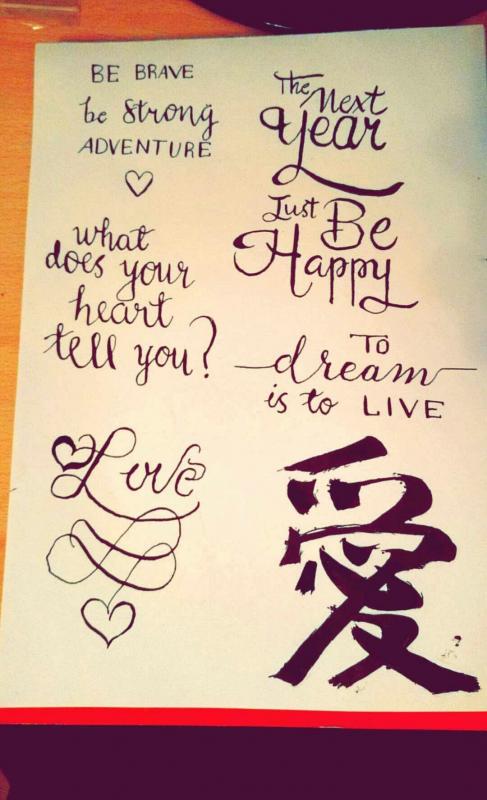 BE BRAVE
be strong
ADVENTURE
what
does your
heart
tell you?
Love
The Next
Year
Just Be
Happy
TO
dream
is to LIVE
愛